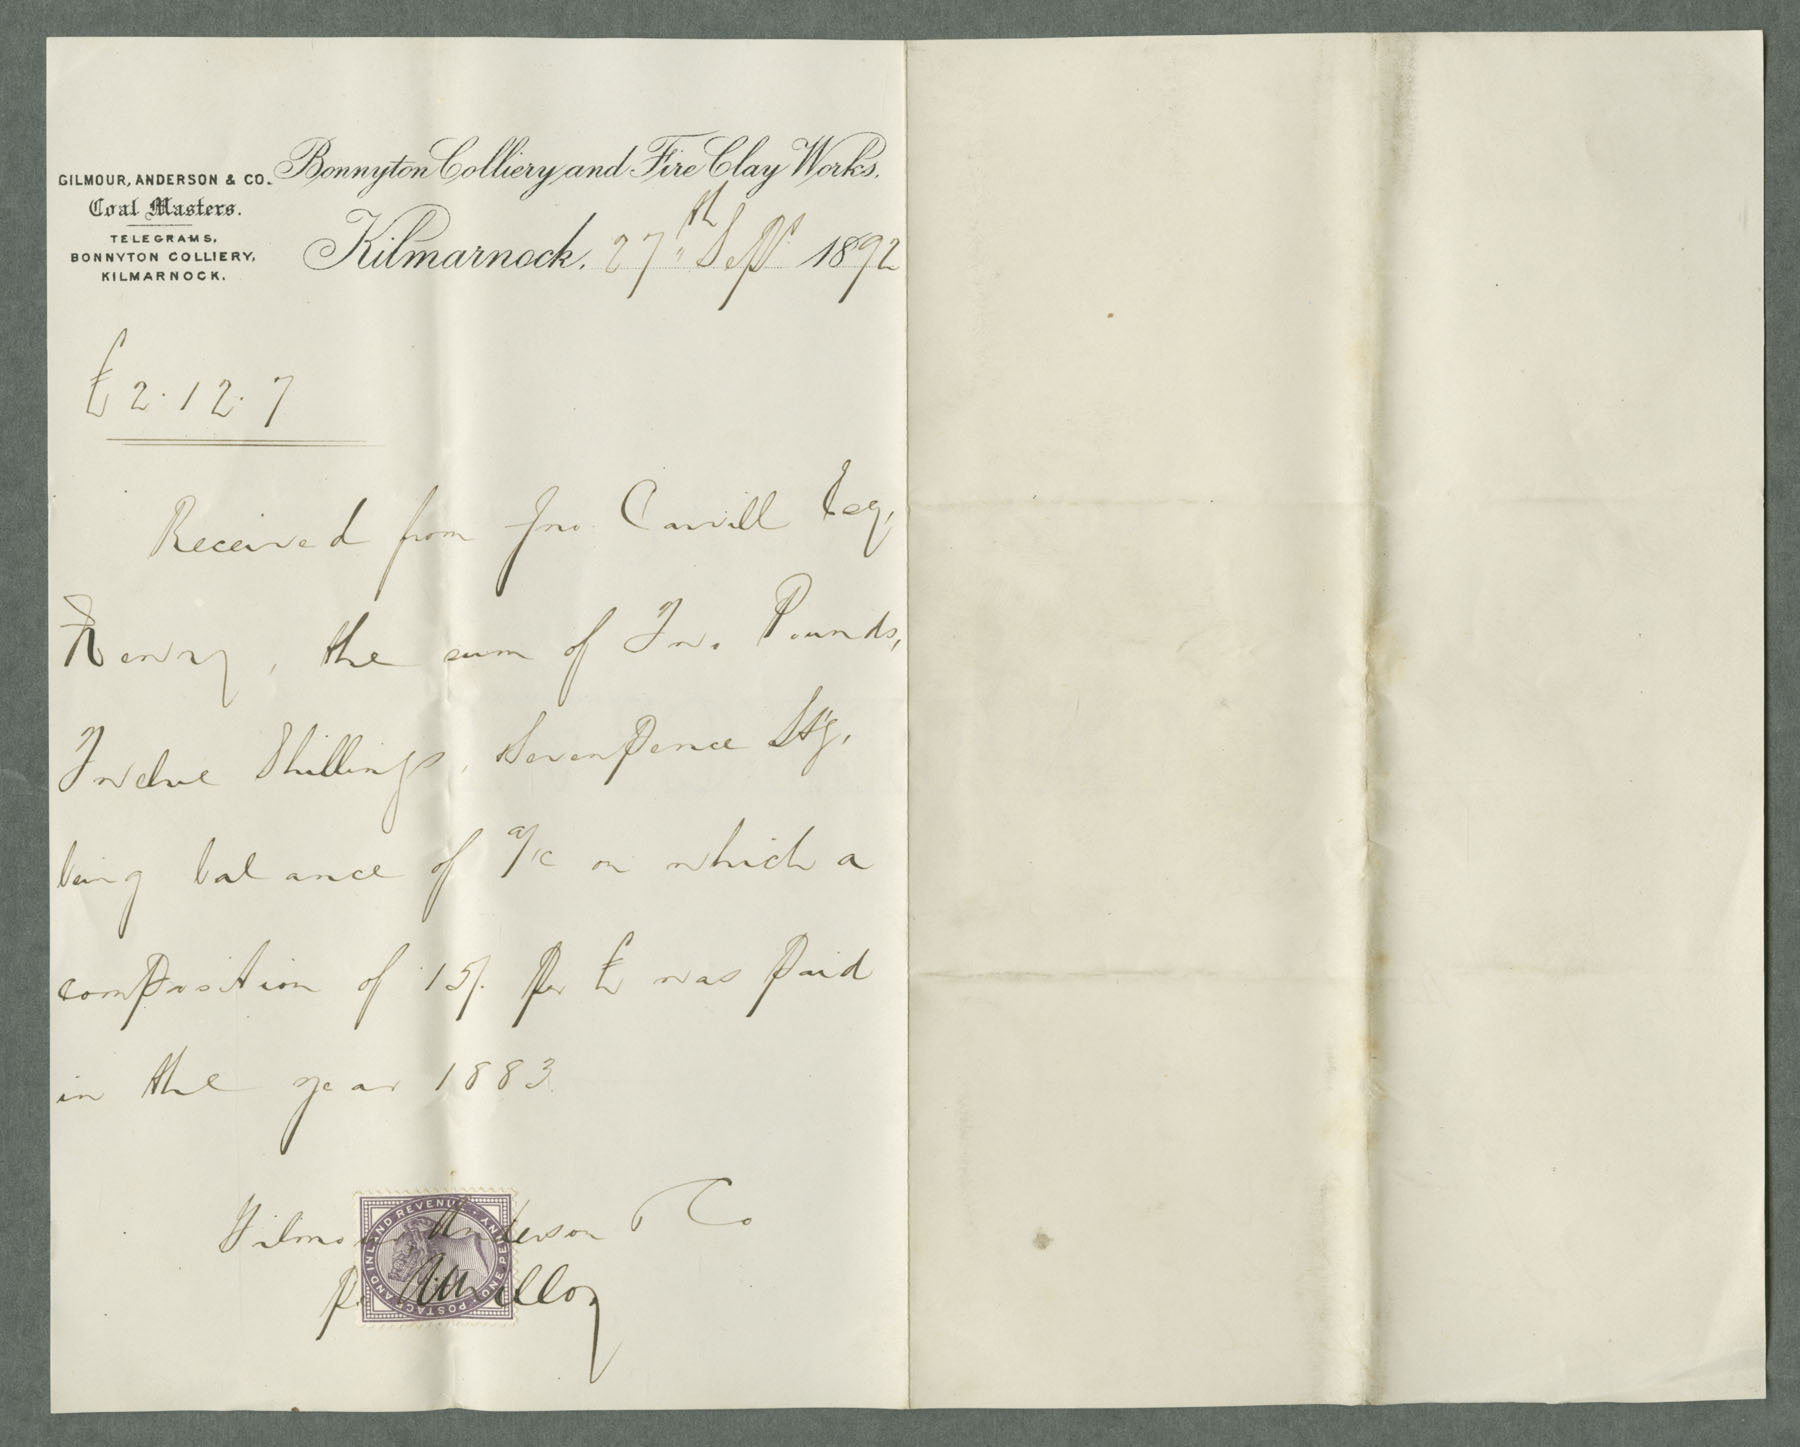 GILMOUR, ANDERSON & CO.
Coal Masters.
TELEGRAMS,
BONNYTON COLLIERY,
KILMARNOCK.
Bonnyton Colliery and Fire Clay Works.
Kilmarnock. 27th Sept 1892
£2.12.7
Received from Jno. Carvill Esq,
Newry, the sum of Two Pounds,
Twelve Shillings, Sevenpence Stg,
being balance of a/c on which a
composition of 15/. per £ was paid
in the year 1883.
Gilmour Anderson & Co
POSTAGE AND INLAND REVENUE · ONE PENNY